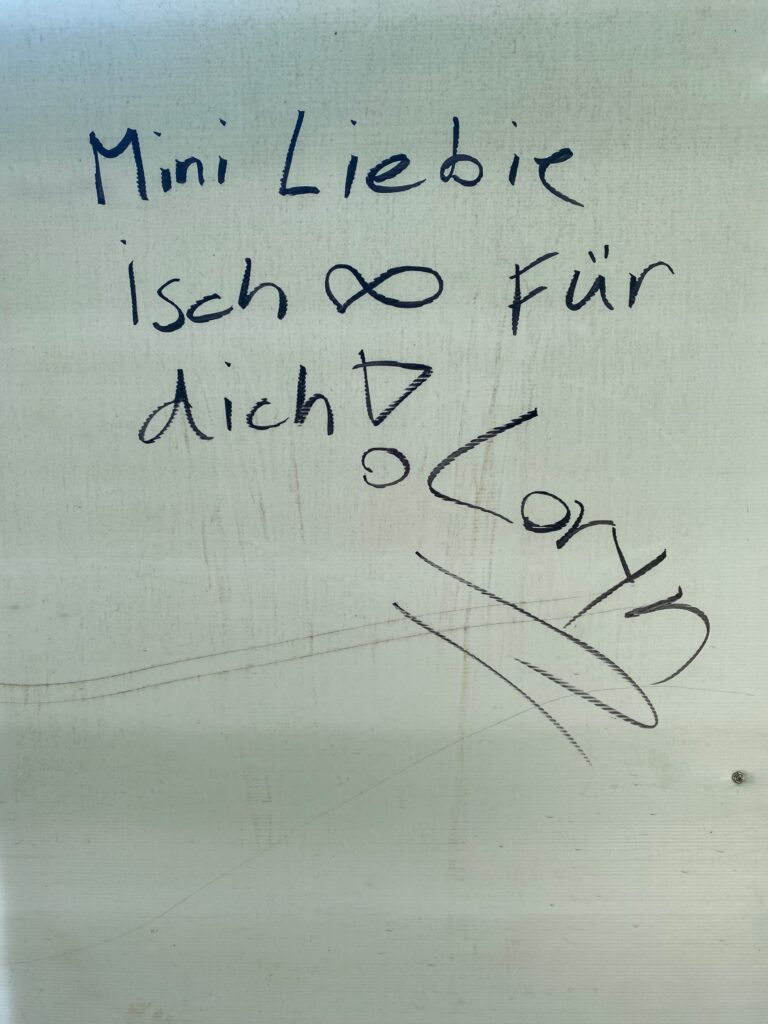 Mini Liebie
isch ∞ Für
dich!
Coryn